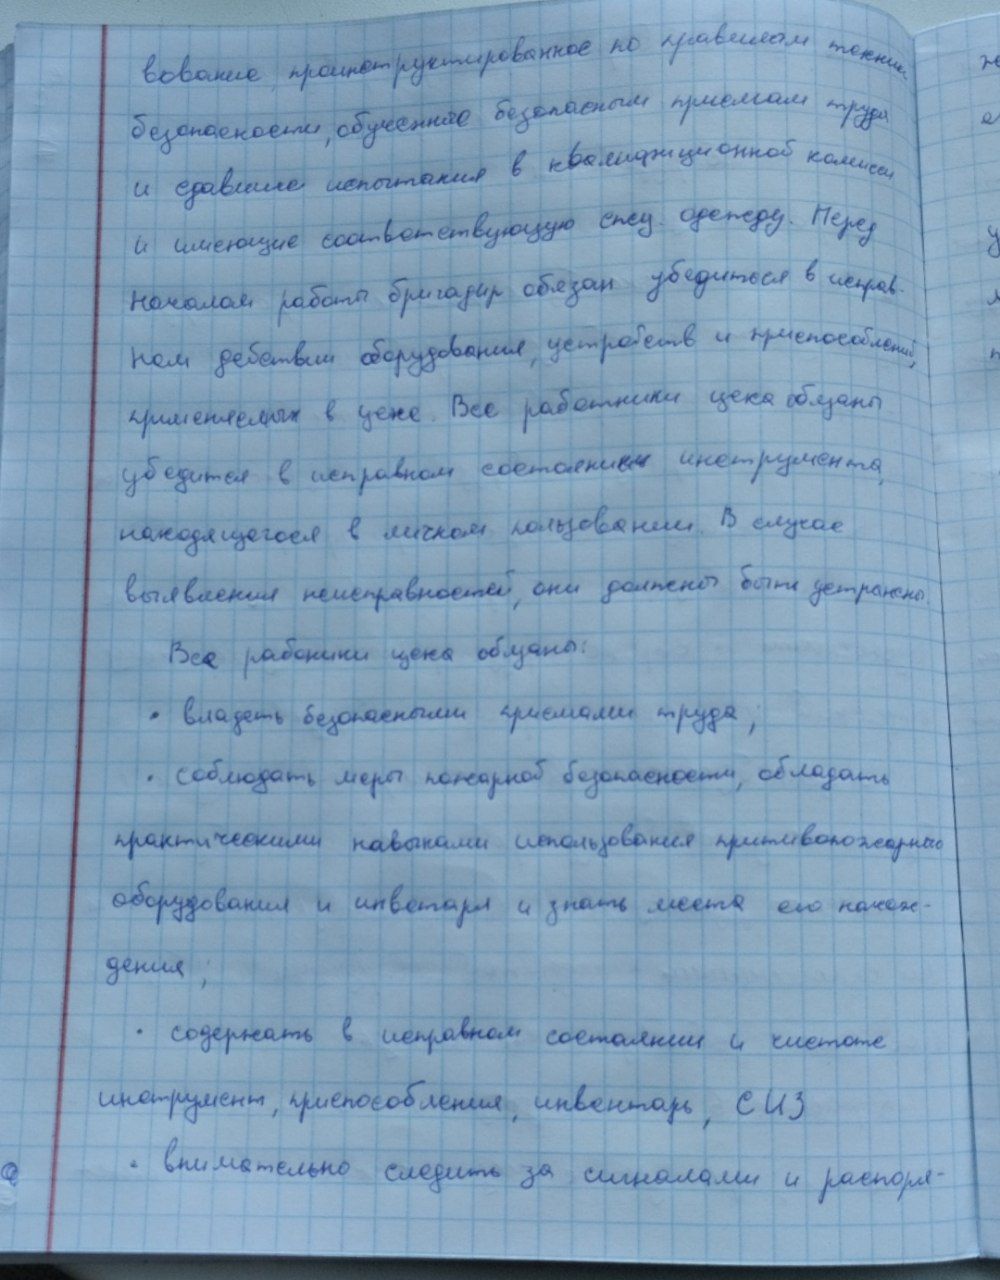 вование, проинструктированное по правилам техники
безопасности, обученные безопасным приемам труда
и сдавшие испытания в квалификационной комиссии
и имеющие соответствующую спец. одежду. Перед
началом работы бригадир обязан убедиться в исправ-
ном действии оборудования, устройств и приспособлений,
применяемых в цехе. Все работники цеха обязаны
убедится в исправном состоянии инструмента,
находящегося в личном пользовании. В случае
выявления неисправностей, они должны быть устранены.
Все рабоники цеха обязаны:
• владеть безопасными приемами труда;
• соблюдать меры пожарной безопасности, обладать
практическими навыками использования притивопожарного
оборудования и инвентаря и знать места его нахож-
дения;
• содержать в исправном состоянии и чистоте
инструмент, приспособления, инвентарь, СИЗ
• внимательно следить за сигналами и распоря-